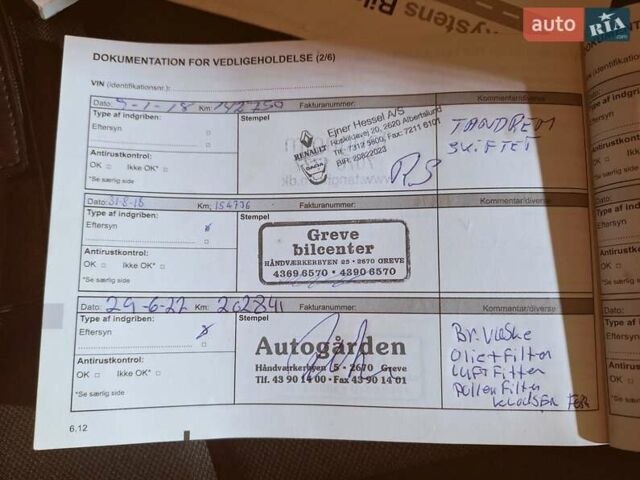 ystens Bil
auto RIA
.com
DOKUMENTATION FOR VEDLIGEHOLDELSE (2/6)
VIN (identifikationsnr.):
Dato: 5-1-18 Km: 142750 Fakturanummer: Kommentar/diverse
Type af indgriben: Stempel
Eftersyn
Antirustkontrol:
OK Ikke OK*
*Se særlig side
RENAULT
DACIA
Ejner Hessel A/S
Roskildevej 20, 2620 Albertslund
Tlf: 7312 5600, Fax: 7211 6101
RS
TANDREM
SKIFTET
Dato: 31-8-18 Km: 154736 Fakturanummer: Kommentar/diverse
Type af indgriben: Stempel
Eftersyn
Antirustkontrol:
OK Ikke OK*
*Se særlig side
Greve
bilcenter
HÅNDVÆRKERBYEN 25 • 2670 GREVE
4369 6570 • 4390 6570
Dato: 29-6-22 Km: 202841 Fakturanummer: Kommentar/diverse
Type af indgriben: Stempel
Eftersyn
Antirustkontrol:
OK Ikke OK*
*Se særlig side
Autogården
Håndværkerbyen 5 • 2670 Greve
Tlf. 43 90 14 00 • Fax 43 90 14 01
Br. Væske
Oliet Filter
LUFT Filter
Pollen Filter
KLODSER FOR
6.12